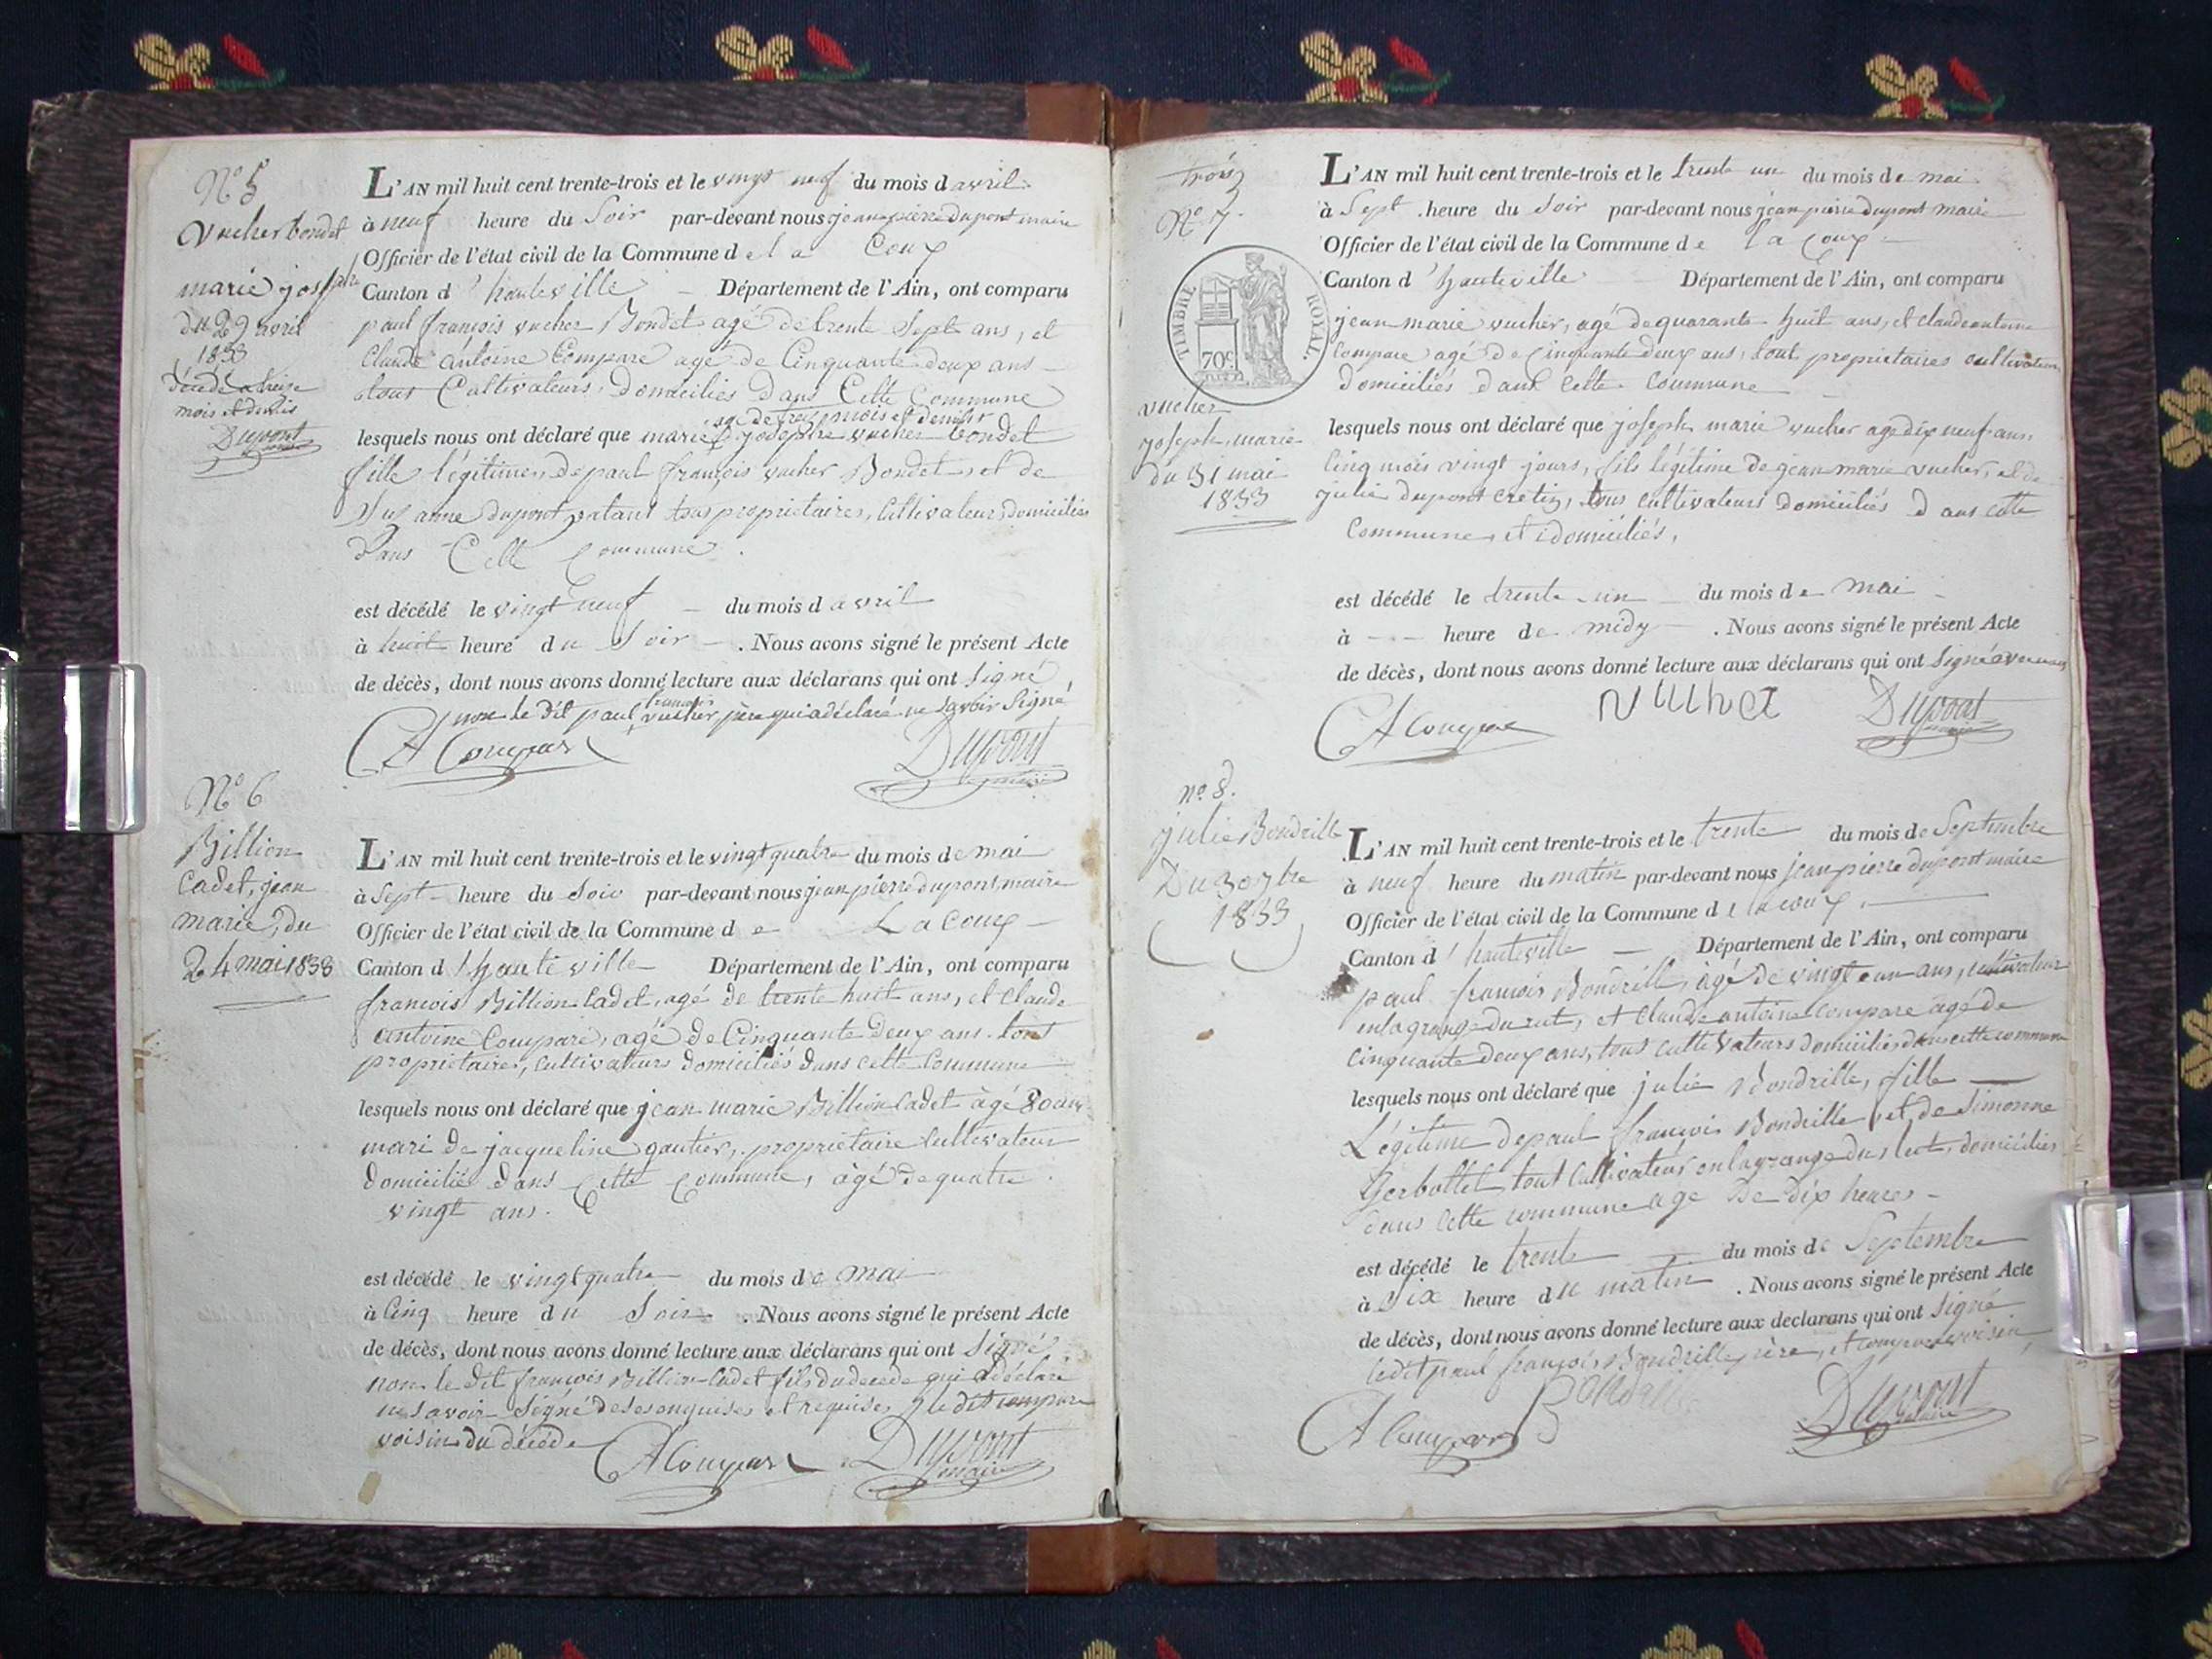 N° 5
Vucher bondet
marie josephe
du 29 avril
1833
décédé a treize
mois et demis
Dupont
L'AN mil huit cent trente-trois et le vingt neuf du mois d avril
à neuf heure du Soir par-devant nous jean pierre dupont maire
Officier de l'état civil de la Commune d e la Coux
Canton d' hauteville Département de l'Ain, ont comparu
paul françois vucher Bondet agé de trente Sept ans, et
Claude antoine Compare agé de Cinquante deux ans
tous Cultivateurs, Domiciliés Dans Cette Commune
agé de treize mois et demis
lesquels nous ont déclaré que marie josephe vucher bondet
fille légitime, de paul françois vucher Bondet, et de
anne dupont tous proprietaires, Cultivateurs, domiciliés
Dans Cette Commune.
est décédé le vingt neuf du mois d avril
à huit heure du Soir. Nous avons signé le présent Acte
de décès, dont nous avons donné lecture aux déclarans qui ont Signé,
françois
non le dit paul vucher père qui a déclaré ne Savoir Signé
CA Compare Dupont maire
N° 6
Billion
Cadet, jean
marie, du
24 mai 1833
L'AN mil huit cent trente-trois et le vingt quatre du mois de mai
à Sept heure du Soir par-devant nous jean pierre dupont, maire
Officier de l'état civil de la Commune d e La Coux
Canton d' hauteville Département de l'Ain, ont comparu
françois Billion Cadet, agé de trente huit ans, et Claude
antoine Compare, agé de Cinquante Deux ans. tous
proprietaires, Cultivateurs domiciliés dans cette Commune
lesquels nous ont déclaré que jean marie Billion Cadet âgé 80 ans
mari de jacqueline gautier, proprietaire Cultivateur
domicilié dans Cette Commune, âgé de quatre
vingt ans.
est décédé le vingt quatre du mois de mai
à Cinq heure du Soir. Nous avons signé le présent Acte
de décès, dont nous avons donné lecture aux déclarans qui ont Signé
non le dit françois Billion-Cadet fils du décédé qui a déclaré
ne Savoir Signé de ses enquises et requises, le dit compare
voisin du décédé
CA Compare Dupont maire
trois
N° 7.
TIMBRE ROYAL.
70c
vucher
joseph, marie
du 31 mai
1833
L'AN mil huit cent trente-trois et le trente un du mois de mai
à Sept heure du Soir par-devant nous jean pierre dupont maire
Officier de l'état civil de la Commune d e la Coux
Canton d' hauteville Département de l'Ain, ont comparu
jean marie vucher, agé de quarante huit ans, et claude antoine
Compare agé de Cinquante deux ans, tout proprietaires cultivateurs
domiciliés dans Cette Commune
lesquels nous ont déclaré que joseph marie vucher agé dix neuf ans,
Cinq mois vingt jours, fils légitime de jean marie vucher, et de
julie dupont cretin, tous cultivateurs domiciliés dans cette
Commune, et domiciliés,
est décédé le trente un du mois de mai
à - - - heure de midy. Nous avons signé le présent Acte
de décès, dont nous avons donné lecture aux déclarans qui ont Signé avec nous
CA Compare vucher Dupont maire
n° 8.
julie Bondrille
Du 30 7bre
1833
L'AN mil huit cent trente-trois et le trente du mois de Septembre
à neuf heure du matin par-devant nous jean pierre dupont maire
Officier de l'état civil de la Commune d e la coux.
Canton d' hauteville Département de l'Ain, ont comparu
paul françois Bondrille, agé de vingt ans, cultivateur
en la grange du , et Claude antoine Compare agé de
Cinquante deux ans, tous cultivateurs domiciliés dans cette commune
lesquels nous ont déclaré que julie Bondrille, fille
Légitime de paul françois Bondrille, et de Simonne
Gerbottet, tout Cultivateur en la grange du , domiciliés
dans Cette commune age De dix heures
est décédé le trente du mois de Septembre
à Six heure du matin. Nous avons signé le présent Acte
de décès, dont nous avons donné lecture aux declarans qui ont Signé
le dit paul françois Bondrille père, et compare voisin
CA Compare Bondrille Dupont maire